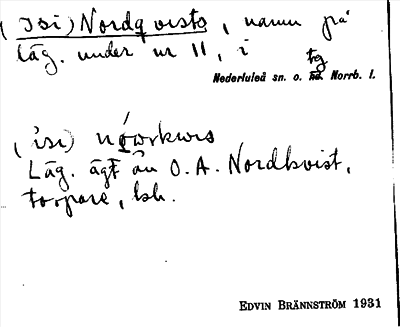 (Isi) Nordqvists, namn på
läg. under nr 11, i
tg
Nederluleå sn. o. hd. Norrb. l.
(isi)
Läg. ägt av O. A. Nordkvist,
torpare, bsh.
EDVIN BRÄNNSTRÖM 1931